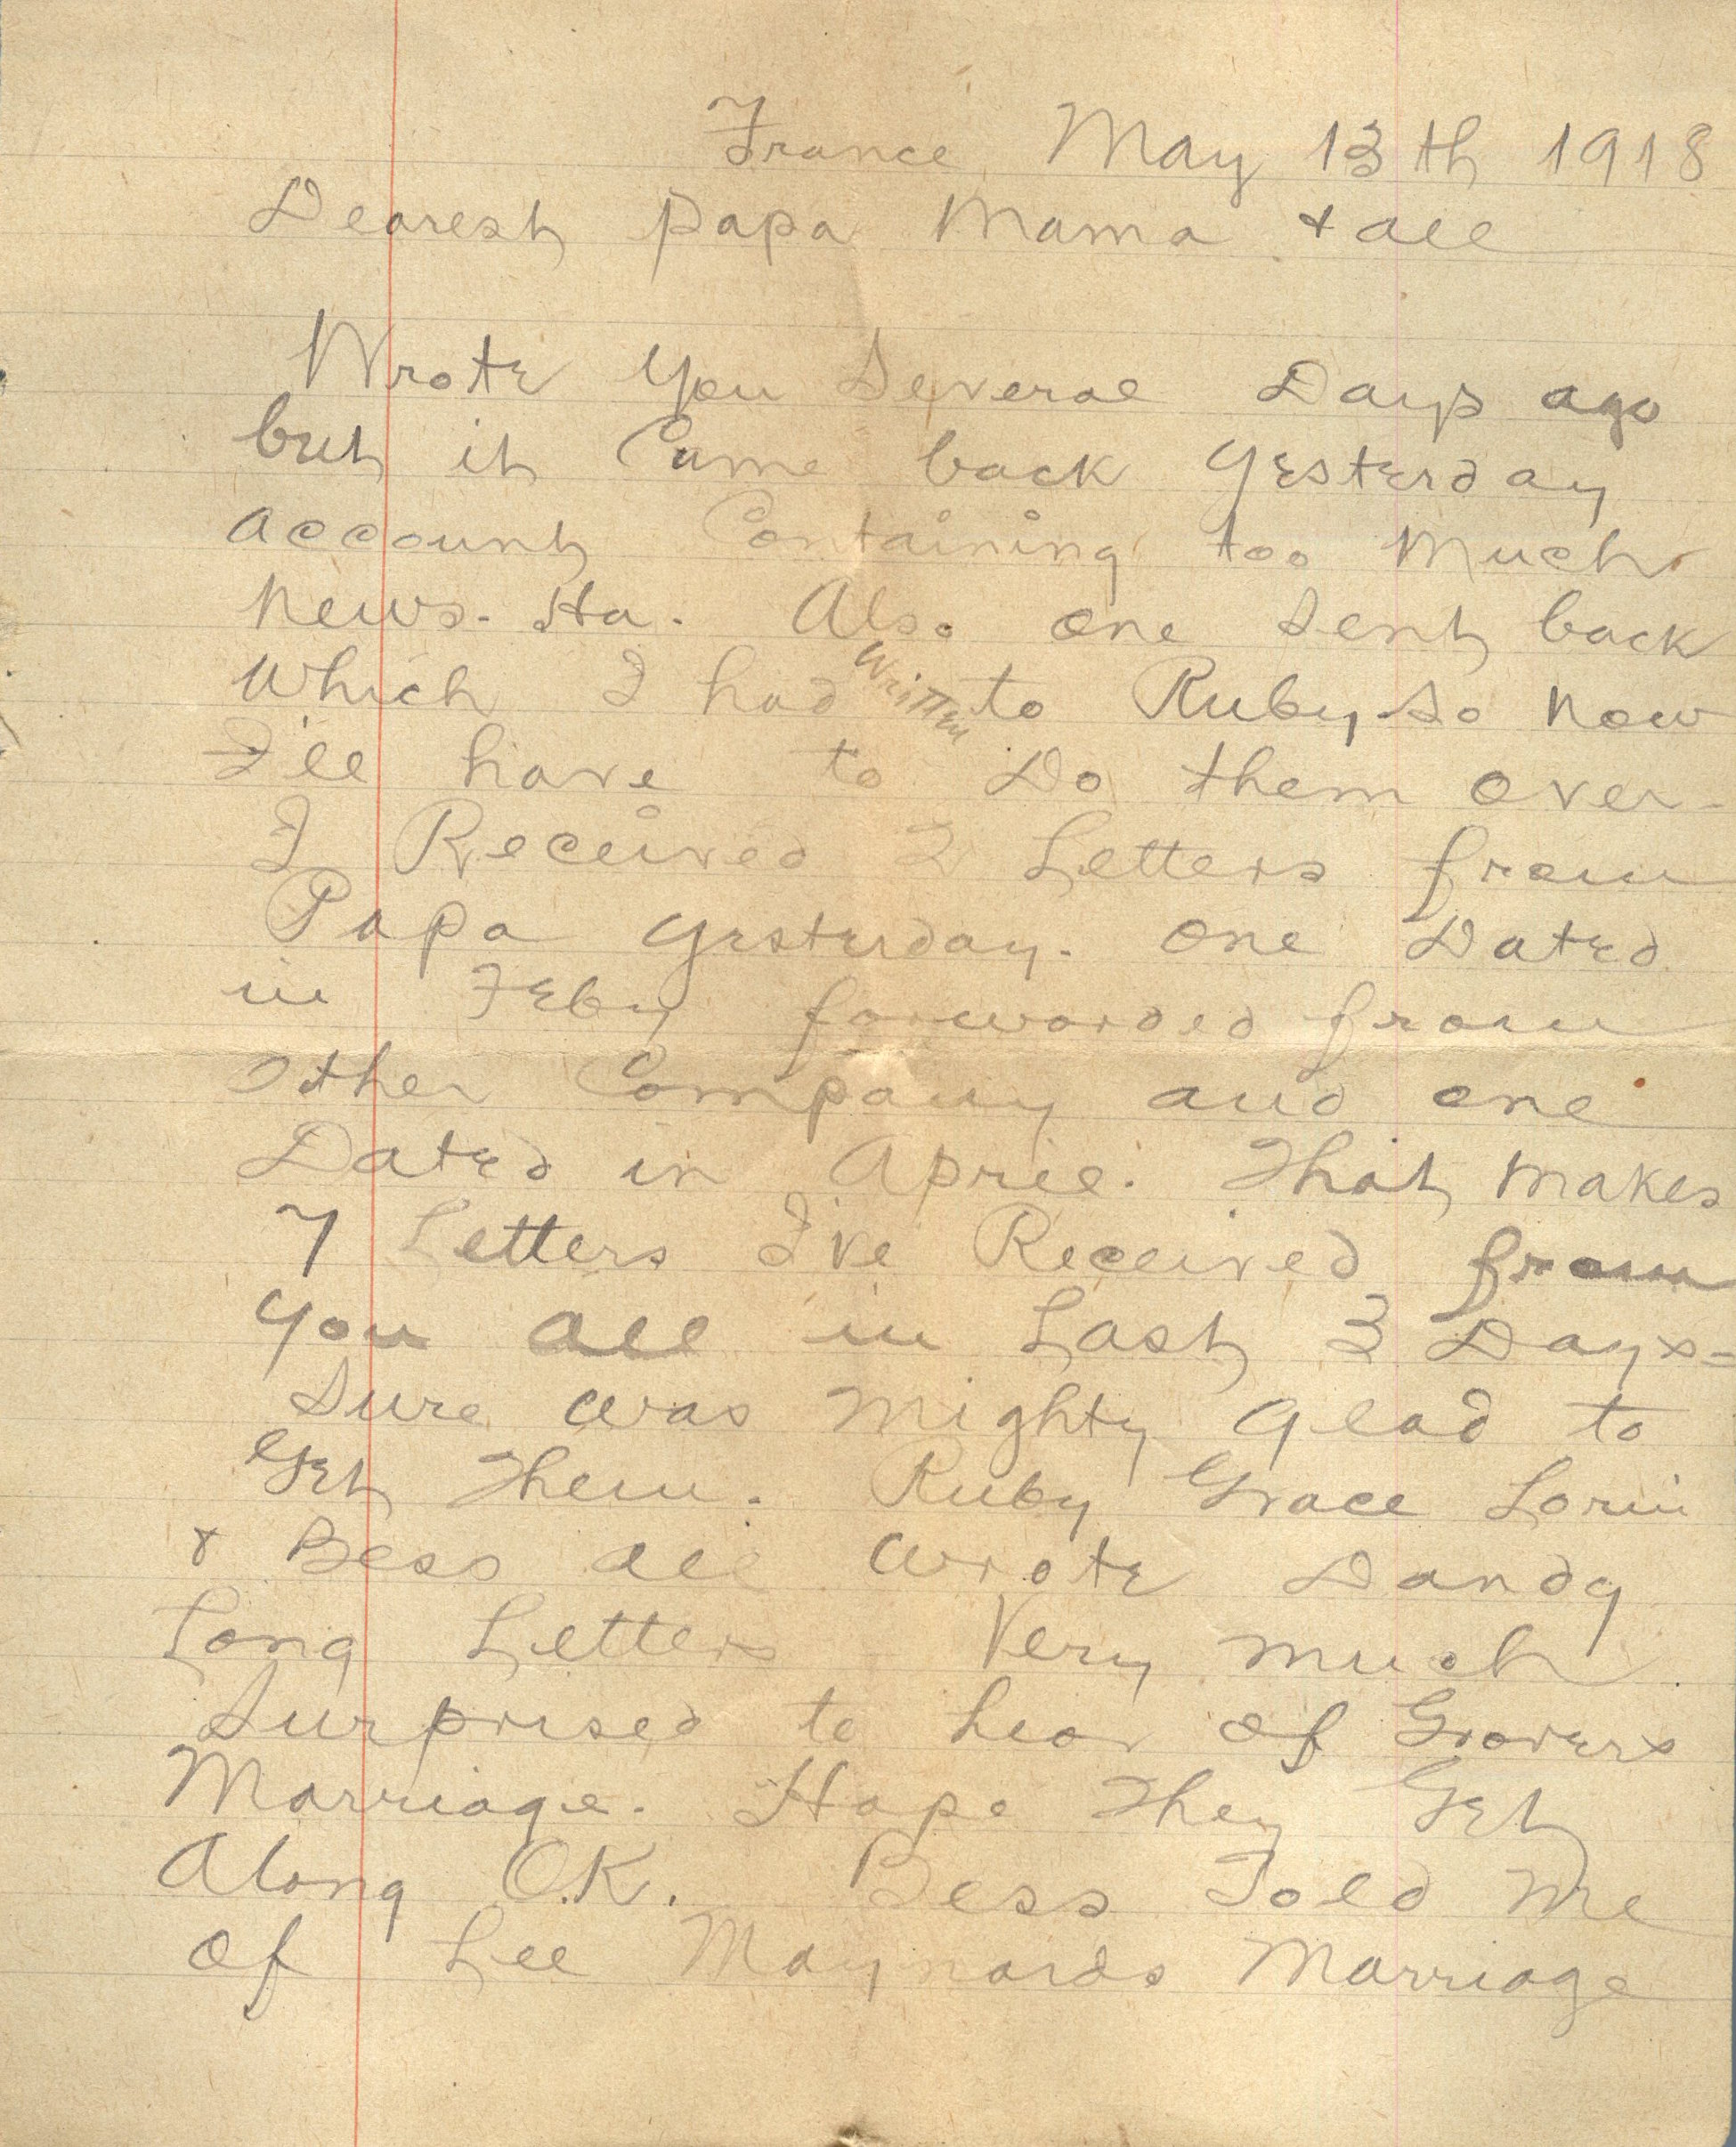 France May 13th 1918
Dearest Papa Mama & all
Wrote you Several Days ago
but it Came back yesterday
account Containing too Much
News. Ha. Also one Sent back
Which I had written to Ruby. So Now
I'll have to Do them over-
I Received 2 Letters from
Papa yesterday. One Dated
in Feby forwarded from
other Company and one
Dated in April. That Makes
7 Letters I've Received from
you all in Last 3 Days=
Sure was Mighty glad to
Get Them. Ruby Grace Lorin
& Bess all wrote Dandy
Long Letters Very much
Surprised to hear of Grovers
Marriage. Hope They Get
Along O.K. Bess Told me
of Lee Maynards Marriage